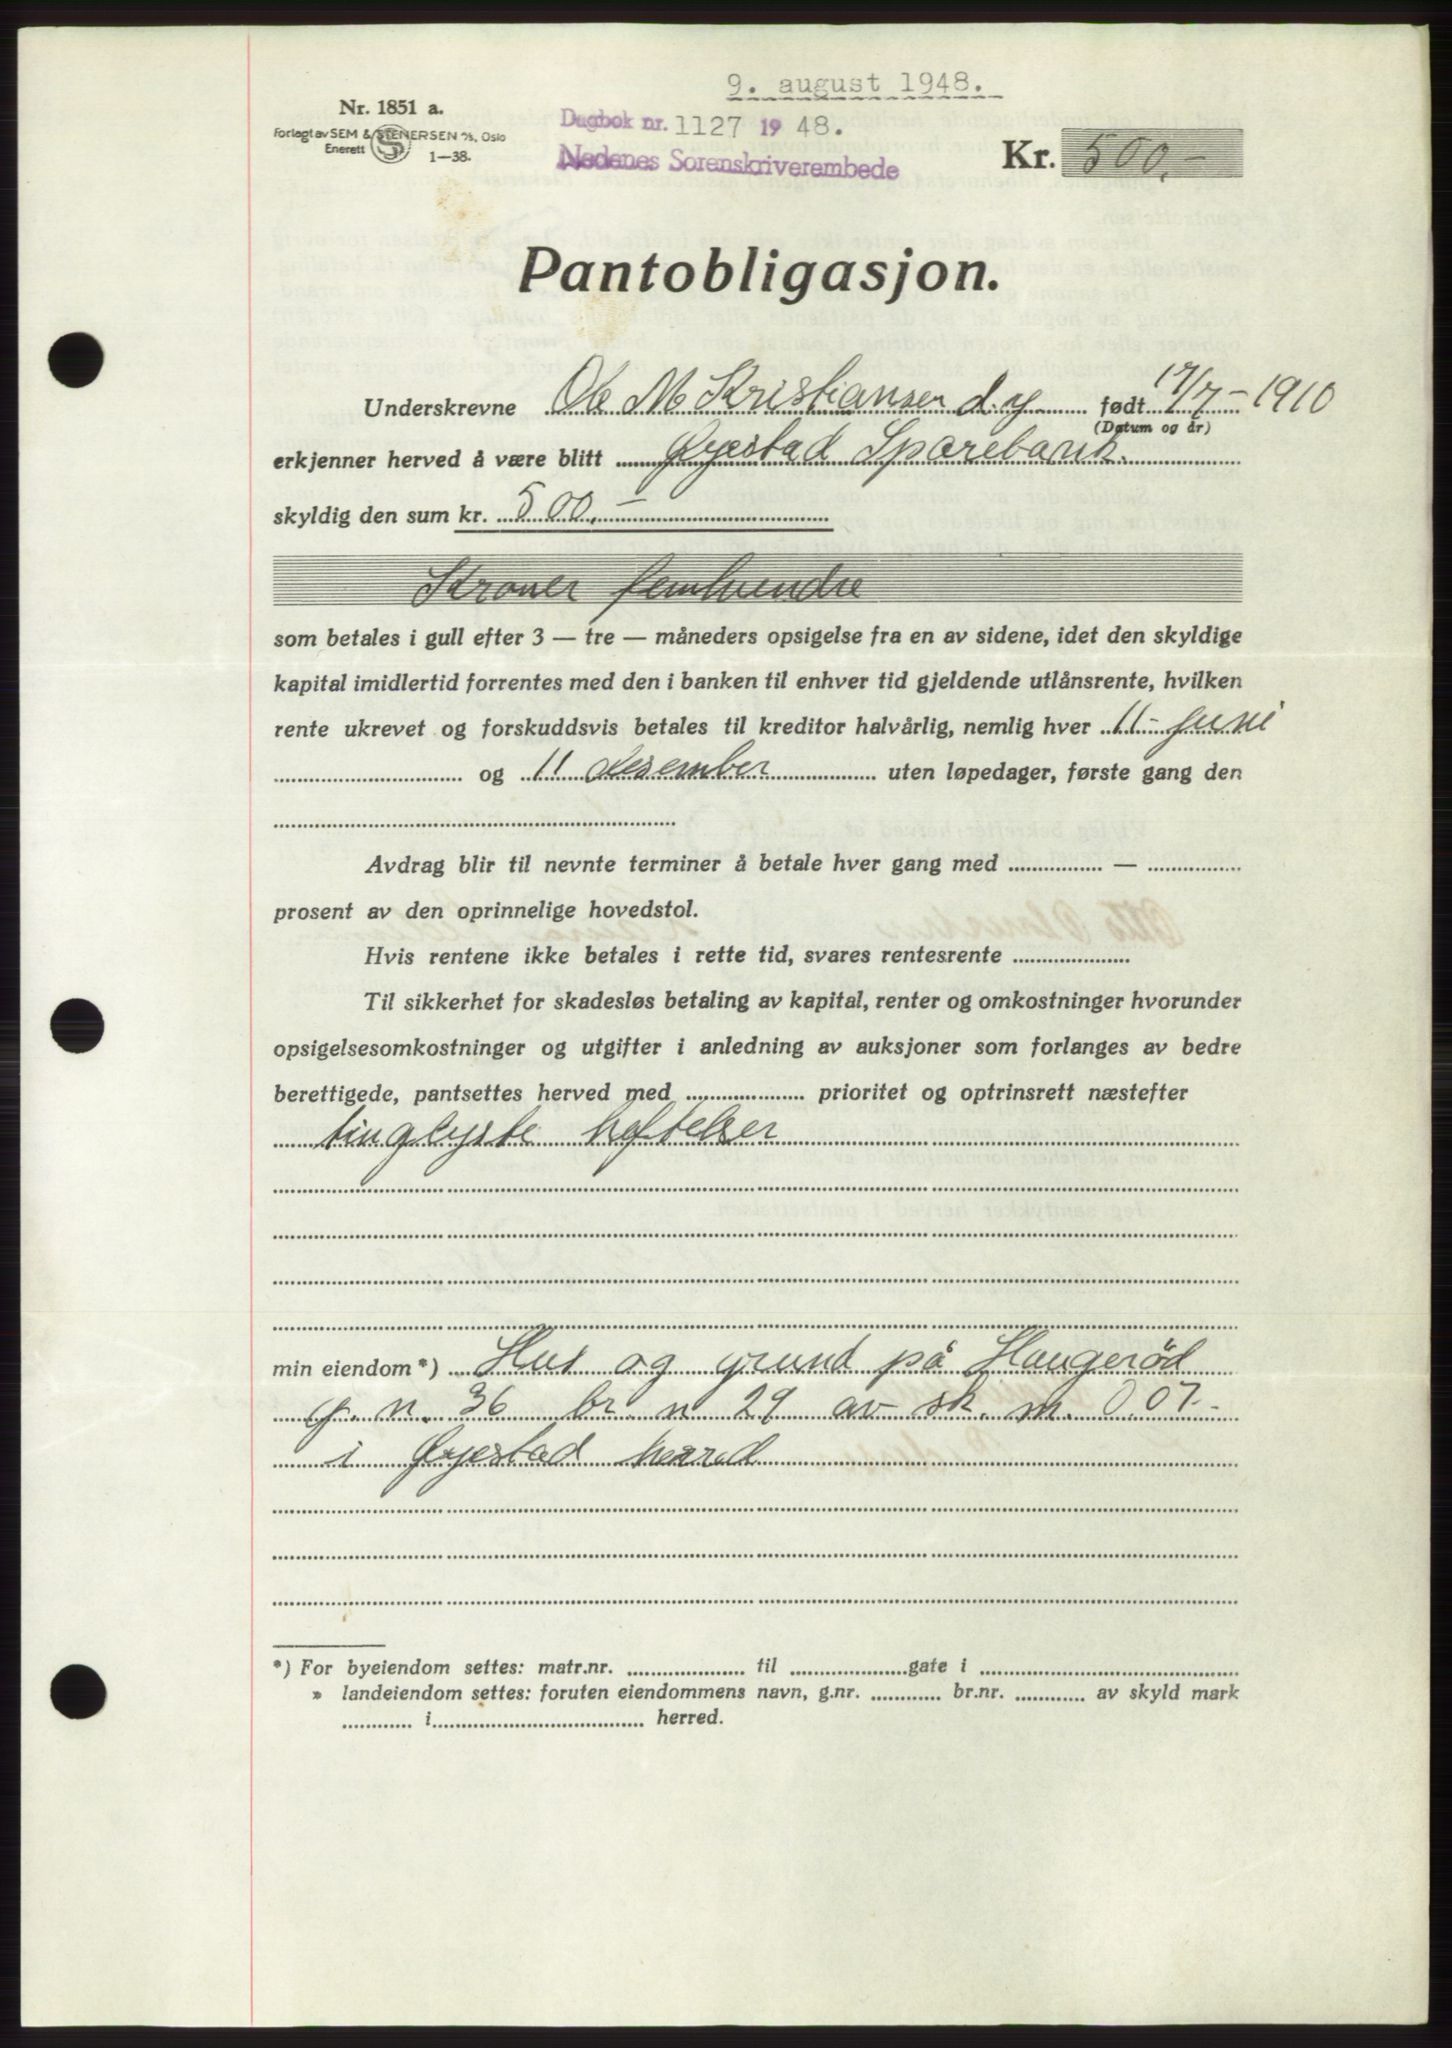 9. august 1948.
Nr. 1851 a.
Forlagt av SEM & STENERSEN A/S, Oslo
Enerett 1—38.
Dagbok nr. 1127 1948.
Nedenes Sorenskriverembede
Kr. 500,-
Pantobligasjon.
Underskrevne Ole M Kristiansen d.y. født 17/7-1910
(Datum og år)
erkjenner herved å være blitt Øyestad Sparebank.
skyldig den sum kr. 500,-
Kroner femhundre
som betales i gull efter 3 — tre — måneders opsigelse fra en av sidene, idet den skyldige
kapital imidlertid forrentes med den i banken til enhver tid gjeldende utlånsrente, hvilken
rente ukrevet og forskuddsvis betales til kreditor halvårlig, nemlig hver 11- juni
og 11 desember uten løpedager, første gang den
Avdrag blir til nevnte terminer å betale hver gang med —
prosent av den oprinnelige hovedstol.
Hvis rentene ikke betales i rette tid, svares rentesrente
Til sikkerhet for skadesløs betaling av kapital, renter og omkostninger hvorunder
opsigelsesomkostninger og utgifter i anledning av auksjoner som forlanges av bedre
berettigede, pantsettes herved med prioritet og optrinsrett næstefter
tinglyste heftelser
min eiendom*) Hus og grund på Haugerød
g. n. 36 br. n 29 av sk. m. 0.07-
i Øyestad herred
*) For byeiendom settes: matr.nr. til gate i
» landeiendom settes: foruten eiendommens navn, g.nr. br.nr. av skyld mark
i herred.